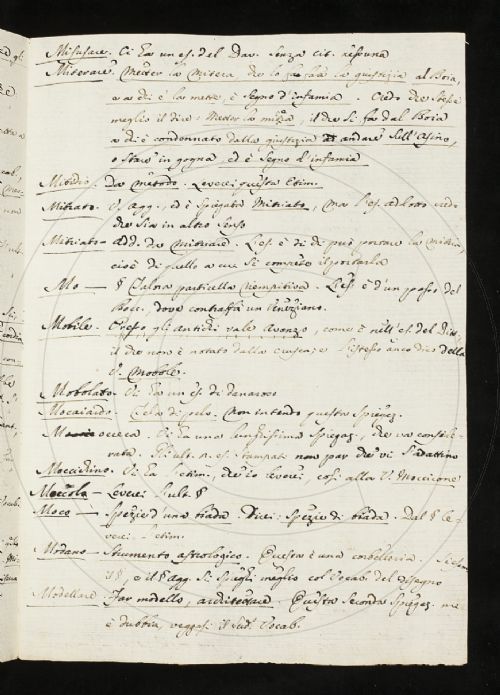 Misusare. Ci ha un es. del Dav. senza cit. nessuna
Miterare. Metter la mitera che lo fa fare la giustizia al Boia,
a chi è la mette, è segno d'infamia. Credo che stesse
meglio il dire: Metter la mitra, il che si fa dal Boia
a chi è condannato dalla giustizia ad andare sull'Asino,
o stare in gogna ed è segno d'infamia
Mitidio. Da metodo. Leverei questa Etim.
Mitrato. V. Agg., ed è spiegato Mitriato, ma l'es. addotto credo
che sia in altro senso
Mitriato - Add. da Mitriare. L'es. è di chi può portare la mitra,
cioè di quello a cui si compete il portarla
Mo — § Talora particella riempitiva. L'es. è d'un passo del
Bocc., dove contraffà un Veneziano.
Mobile. Presso gli antichi vale avanzo, come è nell'es. del
il che non è notato dalla Crusca. L'istesso anco dico della
V. Mobole.
Mobolato. Vi ha un es. di danaroso
Mocaiardo. Tela di pelo. Non intendo questa spiegaz.
ceca. Vi ha una lunghissima spiegaz., che va conside-
rata. non par che vi s'adattino
Moccichino. Vi ha l'etim., che io leverei, così alla V. Moccicone
Moccolo — Leverei l'ult. §
Moco — Spezie d'una biada. Direi: Spezie di biada. Dal § le-
verei l'etim.
Modano — Strumento astrologico. Questa è una corbelleria.
il §, e il § Agg. si spieghi meglio col Vocab. del disegno
Modellare. Far modello, architettare. Questa seconda spiegaz.
è dubbia, veggasi il sud. Vocab.